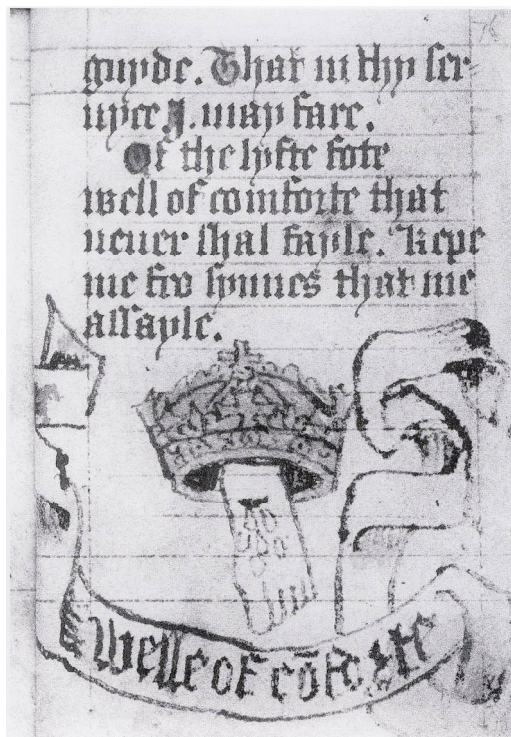 guyde. That in thy ser-
uyce I. may fare.
Of the lyfte fote
well of comforte that
neuer shal fayle. Kepe
me fro synnes that me
assayle.
Welle of cōforte